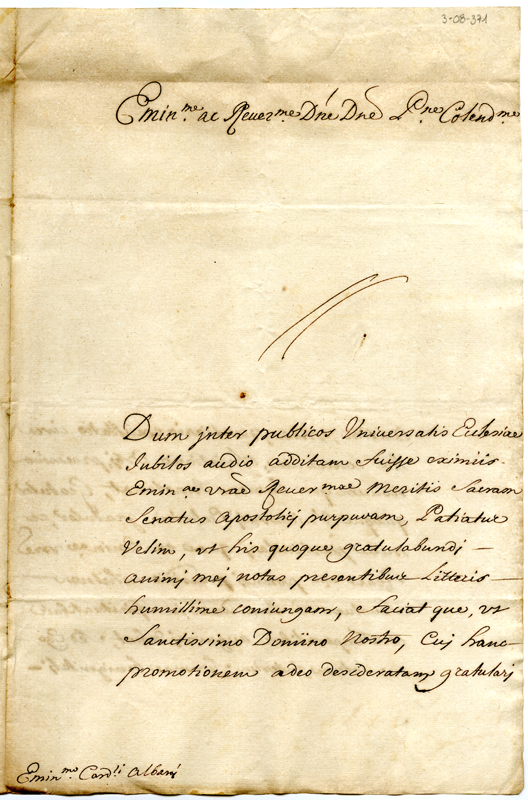 3-08-371
Emin.me ac Rever.me Dne Dne P.ne Colend.me
Dum jnter publicos Universalis Ecclesiae
Jubilos audio additam fuisse eximiis
Emin.ae vrae Rever.mae Meritis Sacram
Senatus Apostolicj purpuram, Patiatur
Velim, ut his quoque gratulabundj —
animj mej notas presentibus Litteris —
humillime coniungam, faciatque, ut
Sanctissimo Domino Nostro, Cuj hanc
promotionem adeo desideratam gratularj
Emin.mo Card.li Albanj